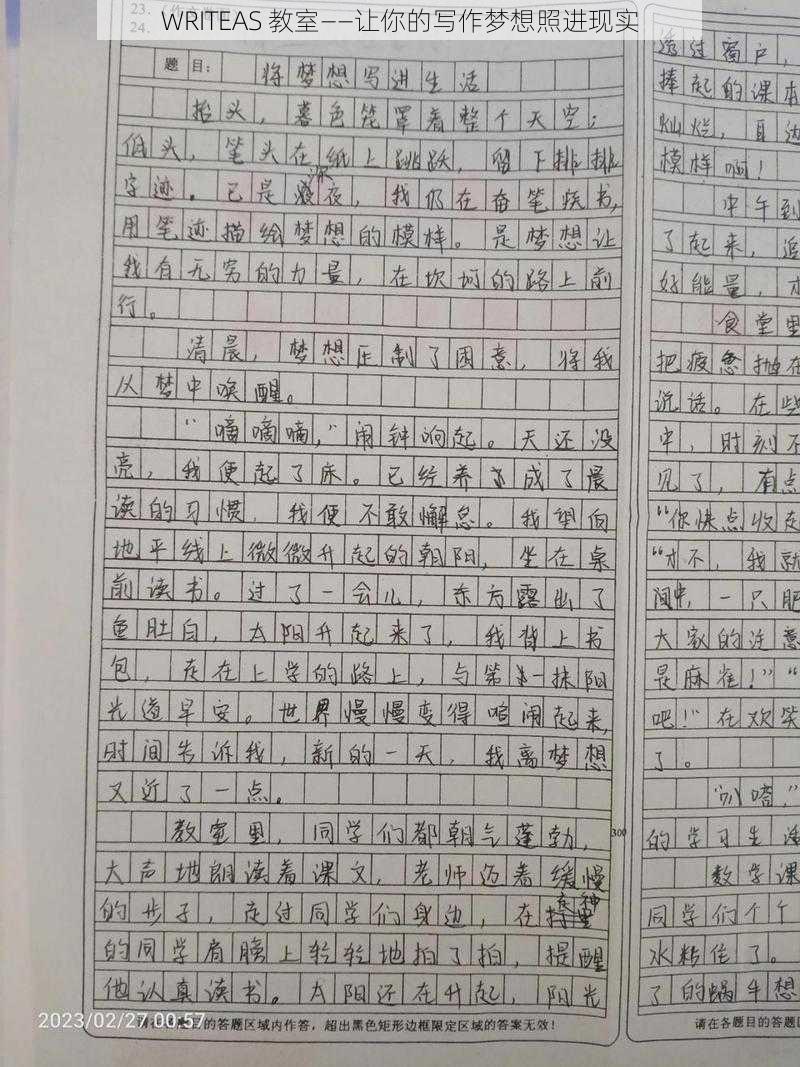 WRITEAS 教室——让你的写作梦想照进现实
24.
题 目： 将梦想写进生活
抬头，暮色笼罩着整个天空；
低头，笔头在纸上跳跃，留下排排
字迹。已是深夜，我仍在奋笔疾书，
用笔迹描绘梦想的模样。是梦想让
我有无穷的力量，在坎坷的路上前
行。
清晨，梦想压制了困意，将我
从梦中唤醒。
“嘀嘀嘀，”闹钟响起。天还没
亮，我便起了床。已经养成了晨
读的习惯，我便不敢懈怠。我望向
地平线上微微升起的朝阳，坐在桌
前读书。过了一会儿，东方露出了
鱼肚白，太阳升起来了，我背上书
包，走在上学的路上，与第一抹阳
光道早安。世界慢慢变得喧闹起来，
时间告诉我，新的一天，我离梦想
又近了一点。
教室里，同学们都朝气蓬勃，
300
大声地朗读着课文，老师迈着缓慢
的步子，走过同学们身边，在走神
的同学肩膀上轻轻地拍了拍，提醒
他认真读书。太阳还在升起，阳光
2023/02/27 00:57
请在各题目的答题区域内作答，超出黑色矩形边框限定区域的答案无效！
透过窗户，
捧起的课本
灿烂，耳边
模样啊！
中午到
了起来，追
好能量，才
食堂里
把疲惫抛在
说话。在些
中，时刻不
见了，有点
“你快点收走
“才不，我就
间中，一只肥
大家的注意
是麻雀！”“
吧！”在欢笑
了。
“叭嗒，”
的学习生活
数学课
同学们个个
水粘住了。
了的蜗牛想
请在各题目的答题区